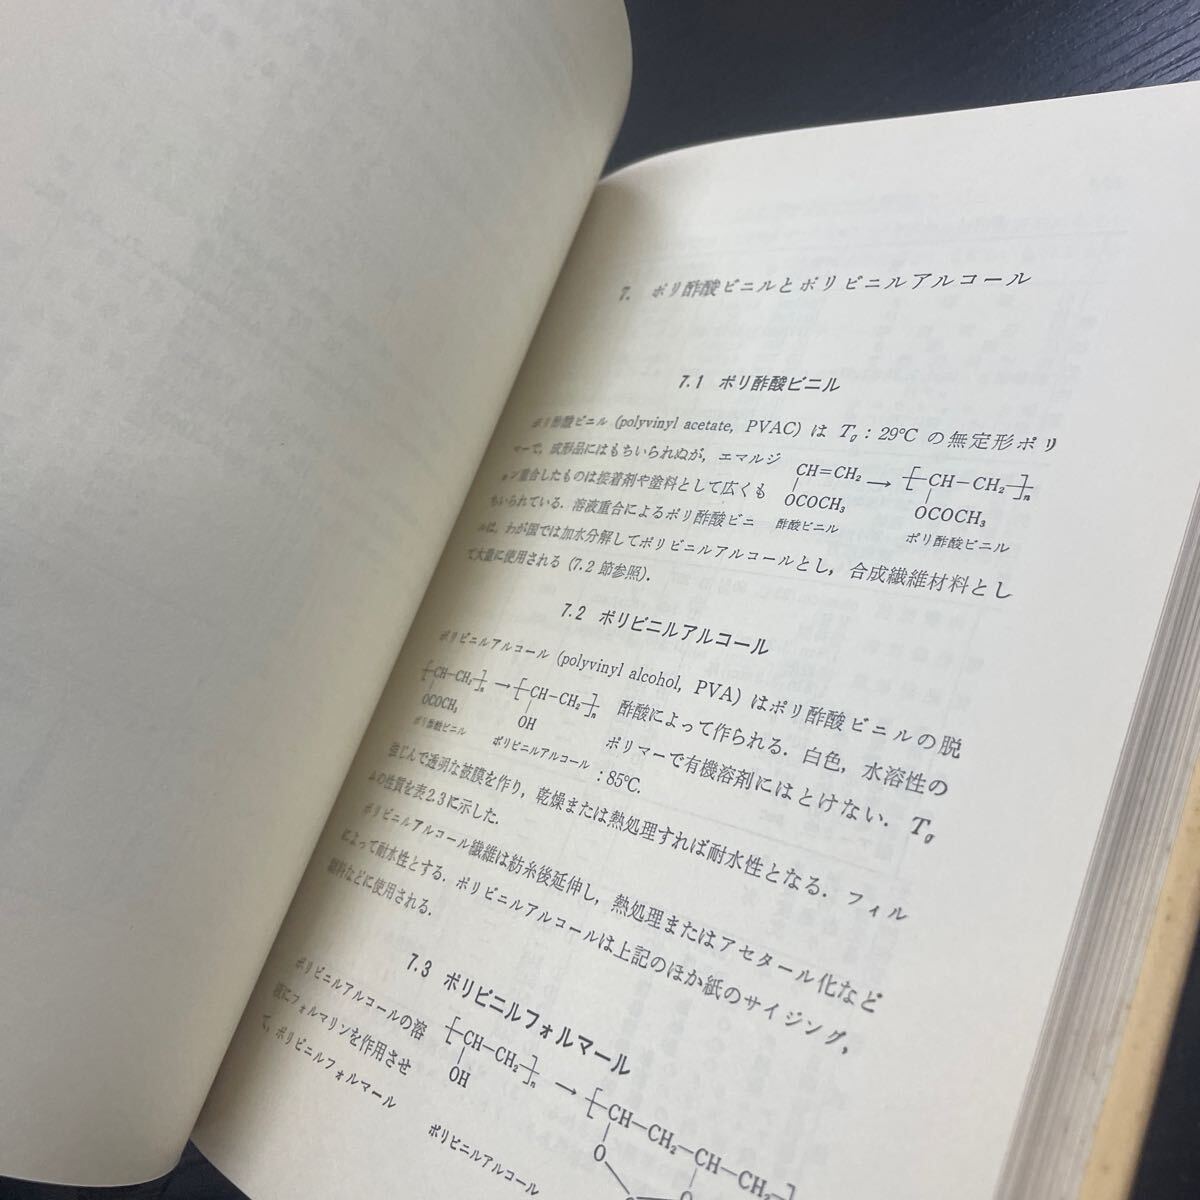 7. ポリ酢酸ビニルとポリビニルアルコール
7.1 ポリ酢酸ビニル
ポリ酢酸ビニル (polyvinyl acetate, PVAC) は Tg : 29℃ の無定形ポリ
マーで，成形品にはもちいられぬが，エマルジ
ョン重合したものは接着剤や塗料として広くも
ちいられている．溶液重合によるポリ酢酸ビニ
CH=CH₂ → [CH−CH₂]n
OCOCH₃ OCOCH₃
酢酸ビニル ポリ酢酸ビニル
ルは，わが国では加水分解してポリビニルアルコールとし，合成繊維材料とし
て大量に使用される (7.2 節参照)．
7.2 ポリビニルアルコール
ポリビニルアルコール (polyvinyl alcohol, PVA) はポリ酢酸ビニルの脱
[CH−CH₂]n → [CH−CH₂]n
OCOCH₃ OH
ポリ酢酸ビニル ポリビニルアルコール
酢酸によって作られる．白色，水溶性の
ポリマーで有機溶剤にはとけない．Tg
: 85℃.
強じんで透明な被膜を作り，乾燥または熱処理すれば耐水性となる．フィル
ムの性質を表2.3に示した．
ポリビニルアルコール繊維は紡糸後延伸し，熱処理またはアセタール化など
によって耐水性とする．ポリビニルアルコールは上記のほか紙のサイジング，
糊料などに使用される．
7.3 ポリビニルフォルマール
ポリビニルアルコールの溶
液にフォルマリンを作用させ
て，ポリビニルフォルマール
[CH−CH₂]n → [CH−CH₂−CH−CH₂]n
OH O O
ポリビニルアルコール